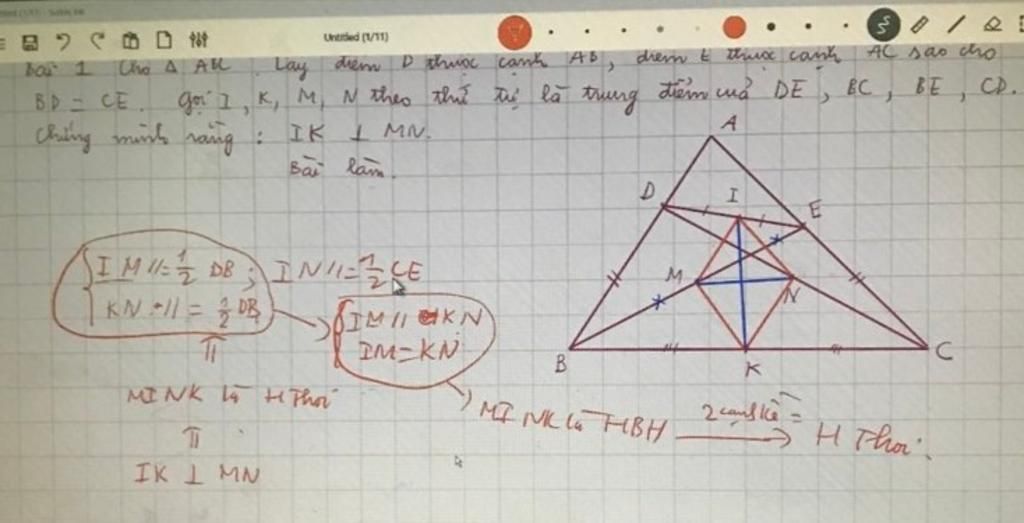 Untitled (1/11)
Bài 1 Cho Δ ABC. Lấy điểm D thuộc cạnh AB, điểm E thuộc cạnh AC sao cho
BD = CE. Gọi I, K, M, N theo thứ tự là trung điểm của DE, BC, BE, CD.
Chứng minh rằng: IK ⊥ MN.
Bài làm.
A
D
I
E
M
N
B
K
C
IM // = 1/2 DB; IN // = 1/2 CE
KN // = 1/2 DB
IM // KN
IM = KN
MINK là H Thoi
IK ⊥ MN
MINK là HBH
2 cạnh kề =
H Thoi.